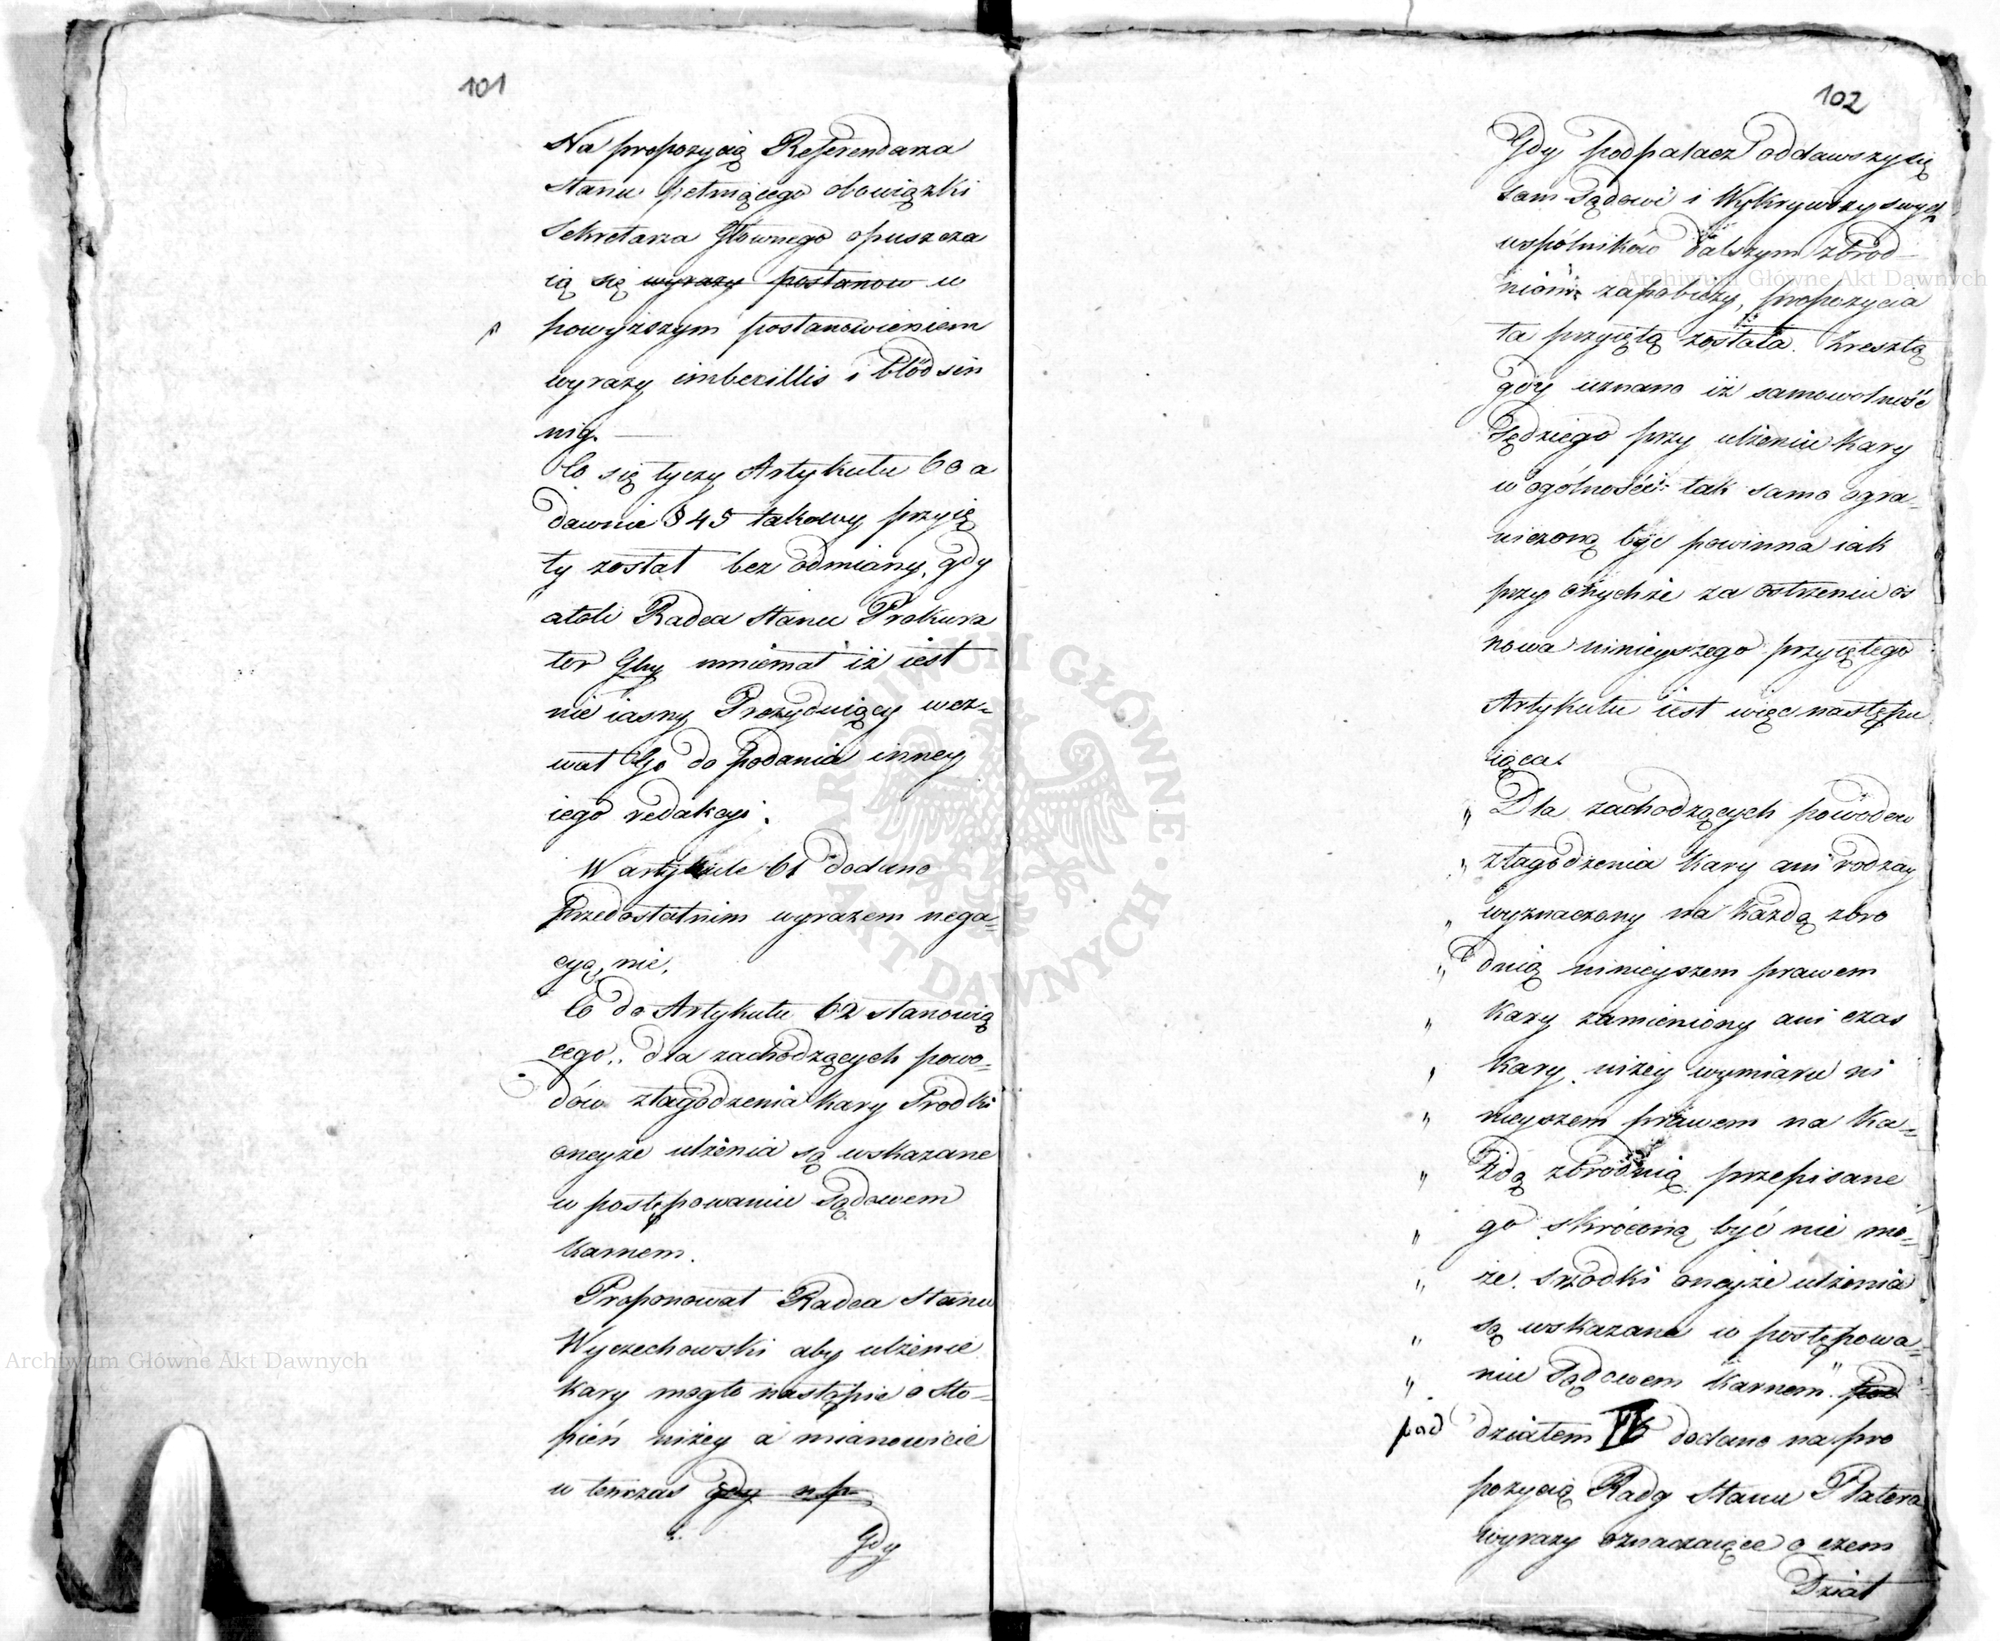 101
Na propozycią Referendarza
Stanu pełniącego obowiązki
Sekretarza Głównego opuszcza
ią się wyrazy postanow w
powyższym postanowieniem
wyrazy imbecillis i blödsin
nig.
Co się tyczy Artykułu 60 a
dawnie § 45 takowy przyię
ty został bez odmiany, gdy
atoli Radca Stanu Prokura
tor Głny mniemał iż iest
nie iasny Prezyduiący wez-
wał Go do podania inney
iego redakcyi.
W artykule 61 dodano
przedostatnim wyrazem nega-
cyą, nie,
Co do Artykułu 62 stanowią
cego „ dla zachodzących powo-
dów złagodzenia kary Srodki
oneyże ulżenia są wskazane
w postępowaniu Sądowem
Karnem.
Proponował Radca Stanu
Wyczechowski aby ulżenie
kary mogło nastąpić o Sto-
pień niżey a mianowicie
w tenczas gdy np
Gdy
102
Gdy podpalacz oddawszy się
sam Sądowi i Wykrywszy swych
wspólników dalszym zbrod-
niom zapobieży, propozycia
ta przyiętą została. Zresztą
gdy uznano iż samowolność
Sędziego przy ulżeniu Kary
w ogólności tak samo ogra-
niczoną być powinna iak
przy onychże za ostrzeniu os
nowa ninieyszego przyiętego
Artykułu iest więc następu
iąca.
„ Dla zachodzących powodów
„ złagodzenia Kary ani rodzay
„ wyznaczony na każdą zbro
„ dnią ninieyszem prawem
„ Kary zamieniony ani czas
„ Kary niżey wymiaru ni
„ nieyszem prawem na Ka-
„ żdą zbrodnią przepisane
„ go skróconą być nie mo-
„ że. Srzodki oneyże ulżenia
„ są wskazane w postępowa-
„ niu Sądowem Karnem". pod
pod działem VI dodano na pro
pozycią Rady Stanu Platera
wyrazy oznaczaiące o czem
Dział
Archiwum Główne Akt Dawnych
Archiwum Główne Akt Dawnych
ARCHIWUM GŁÓWNE · AKT DAWNYCH ·